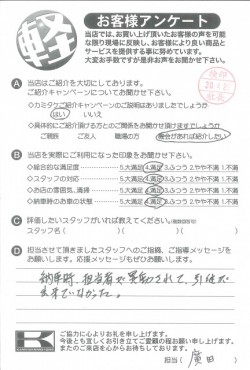 軽
お客様アンケート
当店では、お買い上げ頂いたお客様の声を可能
な限り現場に反映し、お客様により良い商品と
サービスを提供する事に努めています。
大変お手数ですが是非お声をお聞かせ下さい。
A 当店はご紹介を大切にしております。
ご紹介キャンペーンについてお聞かせ下さい。
◇カミタケご紹介キャンペーンのご説明はありましたでしょうか
はい いいえ
◇具体的にご紹介頂ける方とのご関係をお聞かせ頂けますでしょうか
ご親族 ご友人 職場の方 機会があれば紹介したい
B 当店を実際にご利用になった印象をお聞かせ下さい。
◇総合的な満足度 5.大満足 4.満足 3.ふつう 2.やや不満 1.不満
◇スタッフの対応 5.大満足 4.満足 3.ふつう 2.やや不満 1.不満
◇お店の雰囲気、清掃 5.大満足 4.満足 3.ふつう 2.やや不満 1.不満
◇納車時のお車の状態 5.大満足 4.満足 3.ふつう 2.やや不満 1.不満
C 評価したいスタッフがいれば教えてください。
スタッフ名( )( )( )
D 担当させて頂きましたスタッフへのご指摘、ご指導メッセージを
お願いします。応援メッセージもぜひお聞かせ下さい。
納車時、担当者が異動されて、引継が
出来ていなかった。
ご協力に心よりお礼を申し上げます。
今後とも宜しくお引き立てご愛顧の程お願い申し上げます。
またのご来店を心からお待ちしております。
担当( 廣田 )